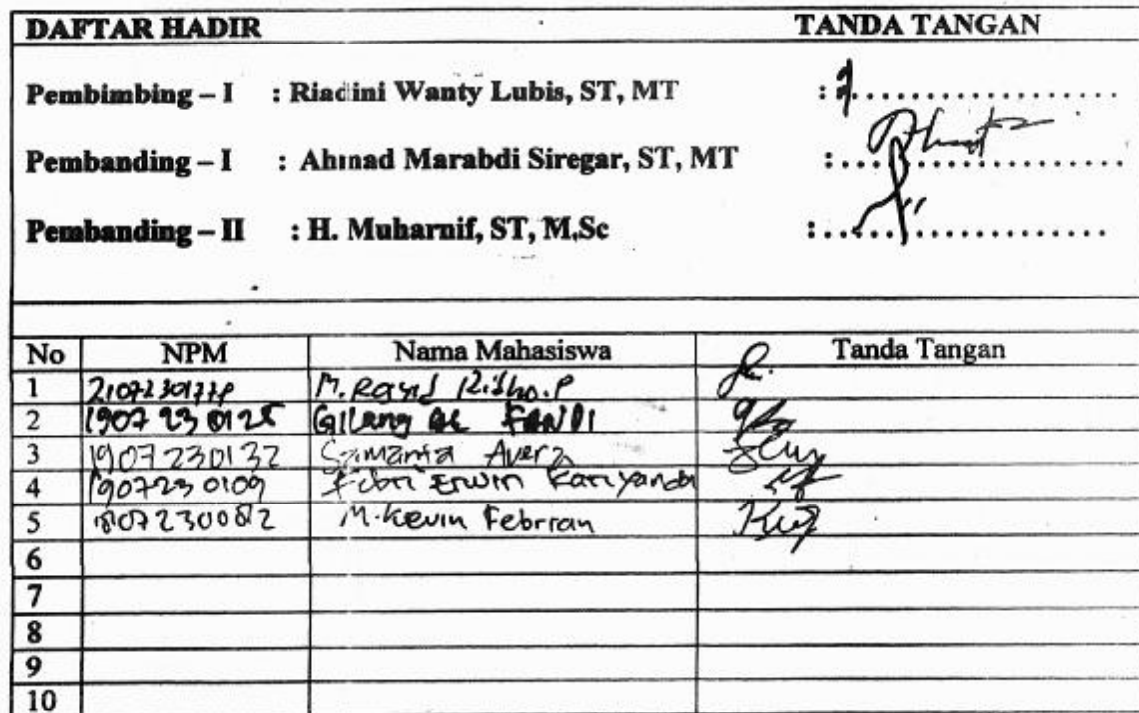 DAFTAR HADIR TANDA TANGAN
Pembimbing – I : Riadini Wanty Lubis, ST, MT :....................
Pembanding – I : Ahmad Marabdi Siregar, ST, MT :....................
Pembanding – II : H. Muharnif, ST, M.Sc :....................
No NPM Nama Mahasiswa Tanda Tangan
1 M. Rasyid Ridho.P
2 1907230125 Gilang AL FANDI
3 1907230132
4 1907230109 Febri Erwin Kariyanda
5 1807230082 M. Kevin Febrian
6
7
8
9
10